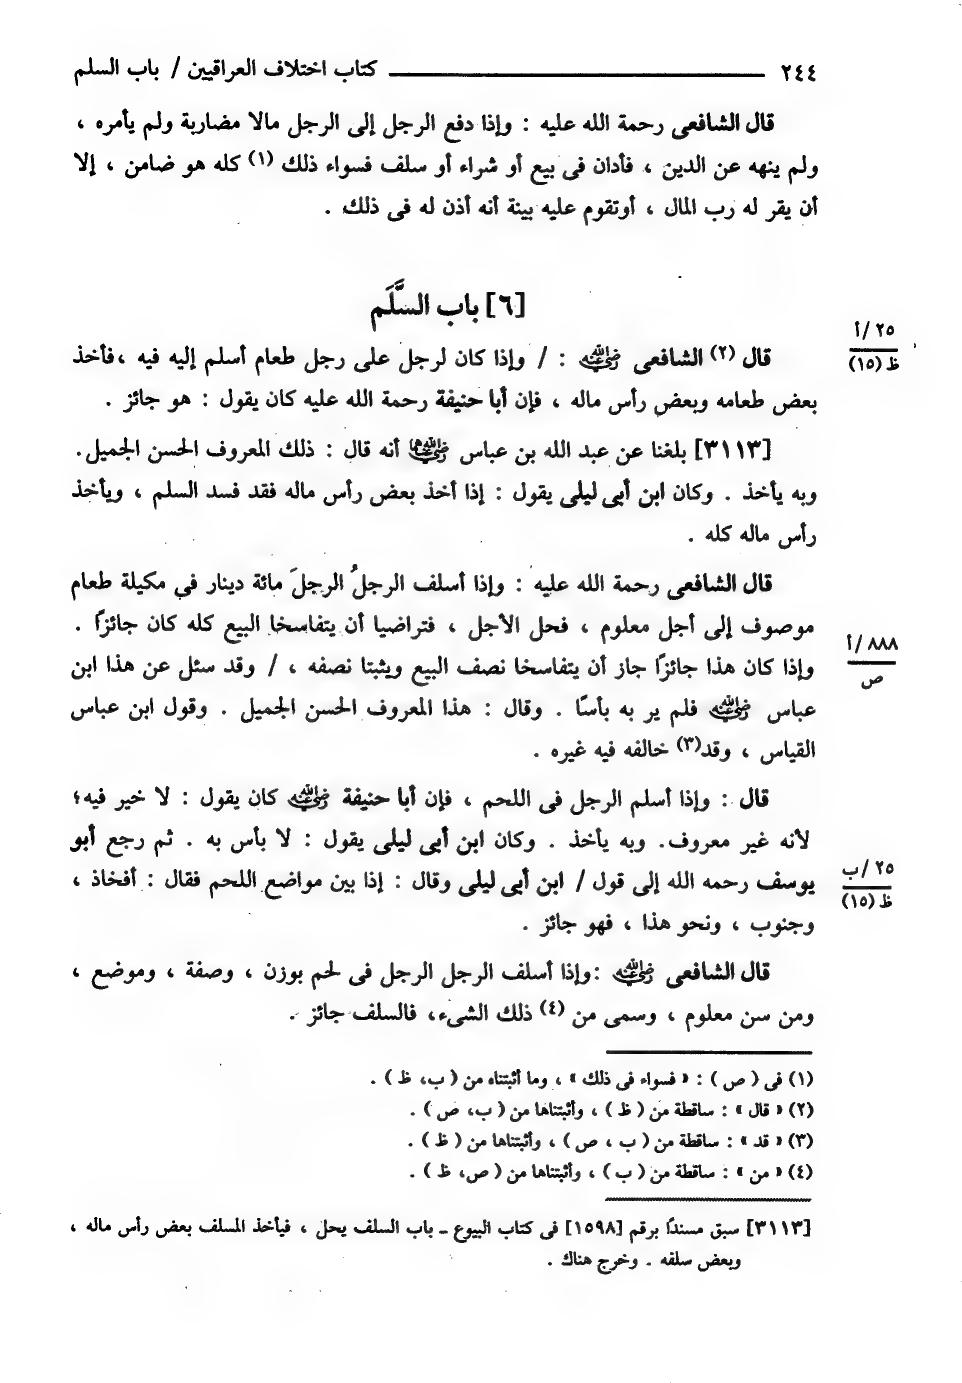 ٢٤٤ كتاب اختلاف العراقيين / باب السلم
قال الشافعى رحمة الله عليه : وإذا دفع الرجل إلى الرجل مالا مضاربة ولم يأمره ،
ولم ينهه عن الدين ، فأدان فى بيع أو شراء أو سلف فسواء ذلك (١) كله هو ضامن ، إلا
أن يقر له رب المال ، أوتقوم عليه بينة أنه أذن له فى ذلك .
[٦] باب السَّلَم
٢٥ /أ
ظ (١٥)
قال (٢) الشافعى رضي الله عنه : / وإذا كان لرجل على رجل طعام أسلم إليه فيه ،فأخذ
بعض طعامه وبعض رأس ماله ، فإن أبا حنيفة رحمة الله عليه كان يقول : هو جائز .
[٣١١٣] بلغنا عن عبد الله بن عباس رضي الله عنهما أنه قال : ذلك المعروف الحسن الجميل.
وبه يأخذ . وكان ابن أبى ليلى يقول : إذا أخذ بعض رأس ماله فقد فسد السلم ، ويأخذ
رأس ماله كله .
قال الشافعى رحمة الله عليه : وإذا أسلف الرجلُ الرجلَ مائة دينار في مكيلة طعام
موصوف إلى أجل معلوم ، فحل الأجل ، فتراضيا أن يتفاسخا البيع كله كان جائزًا .
٨٨٨ /أ
ص
وإذا كان هذا جائزًا جاز أن يتفاسخا نصف البيع ويثبتا نصفه ، / وقد سئل عن هذا ابن
عباس رضي الله عنه فلم ير به بأسًا . وقال : هذا المعروف الحسن الجميل . وقول ابن عباس
القياس ، وقد(٣) خالفه فيه غيره .
قال : وإذا أسلم الرجل فى اللحم ، فإن أبا حنيفة رضي الله عنه كان يقول : لا خير فيه؛
لأنه غير معروف. وبه يأخذ . وكان ابن أبى ليلى يقول : لا بأس به . ثم رجع أبو
٢٥ /ب
ظ (١٥)
يوسف رحمه الله إلى قول / ابن أبى ليلى وقال : إذا بين مواضع اللحم فقال : أفخاذ ،
وجنوب ، ونحو هذا ، فهو جائز .
قال الشافعى رضي الله عنه :وإذا أسلف الرجل الرجل فى لحم بوزن ، وصفة ، وموضع ،
ومن سن معلوم ، وسمى من (٤) ذلك الشىء، فالسلف جائز .
(١) فى ( ص ) : « فسواء فى ذلك » ، وما أثبتناه من ( ب، ظ ) .
(٢) « قال » : ساقطة من ( ظ ) ، وأثبتناها من ( ب، ص ) .
(٣) « قد » : ساقطة من ( ب ، ص ) ، وأثبتناها من ( ظ ) .
(٤) « من » : ساقطة من ( ب ) ، وأثبتناها من ( ص، ظ ) .
[٣١١٣] سبق مسندًا برقم [١٥٩٨] فى كتاب البيوع ــ باب السلف يحل ، فيأخذ المسلف بعض رأس ماله ،
وبعض سلفه . وخرج هناك .